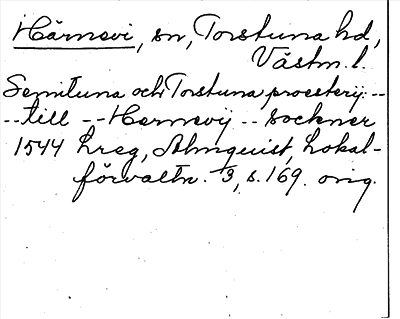 Härnevi, sn, Torstuna hd,
Västm. l.
Semituna och Torstuna proesterij --
-- till -- Hernevij -- sockner
1544 hreg, Almquist, Lokal-
förvaltn. 3, s. 169. orig.